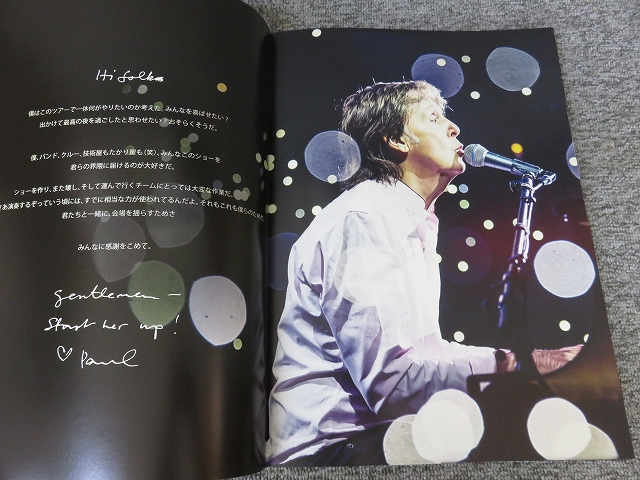 Hi folks
僕はこのツアーで一体何がやりたいのか考えた。みんなを喜ばせたい?
出かけて最高の夜を過ごしたと思わせたい?おそらくそうだ。
僕、バンド、クルー、技術屋もたかり屋も(笑)、みんなこのショーを
君らの界隈に届けるのが大好きだ。
ショーを作り、また壊し、そして運んで行くチームにとっては大変な作業だ。
さあ演奏するぞっていう頃には、すでに相当な力が使われてるんだよ。それもこれも僕らのために
君たちと一緒に、会場を揺らすためさ
みんなに感謝をこめて。
Gentlemen –
Start her up!
♡ Paul